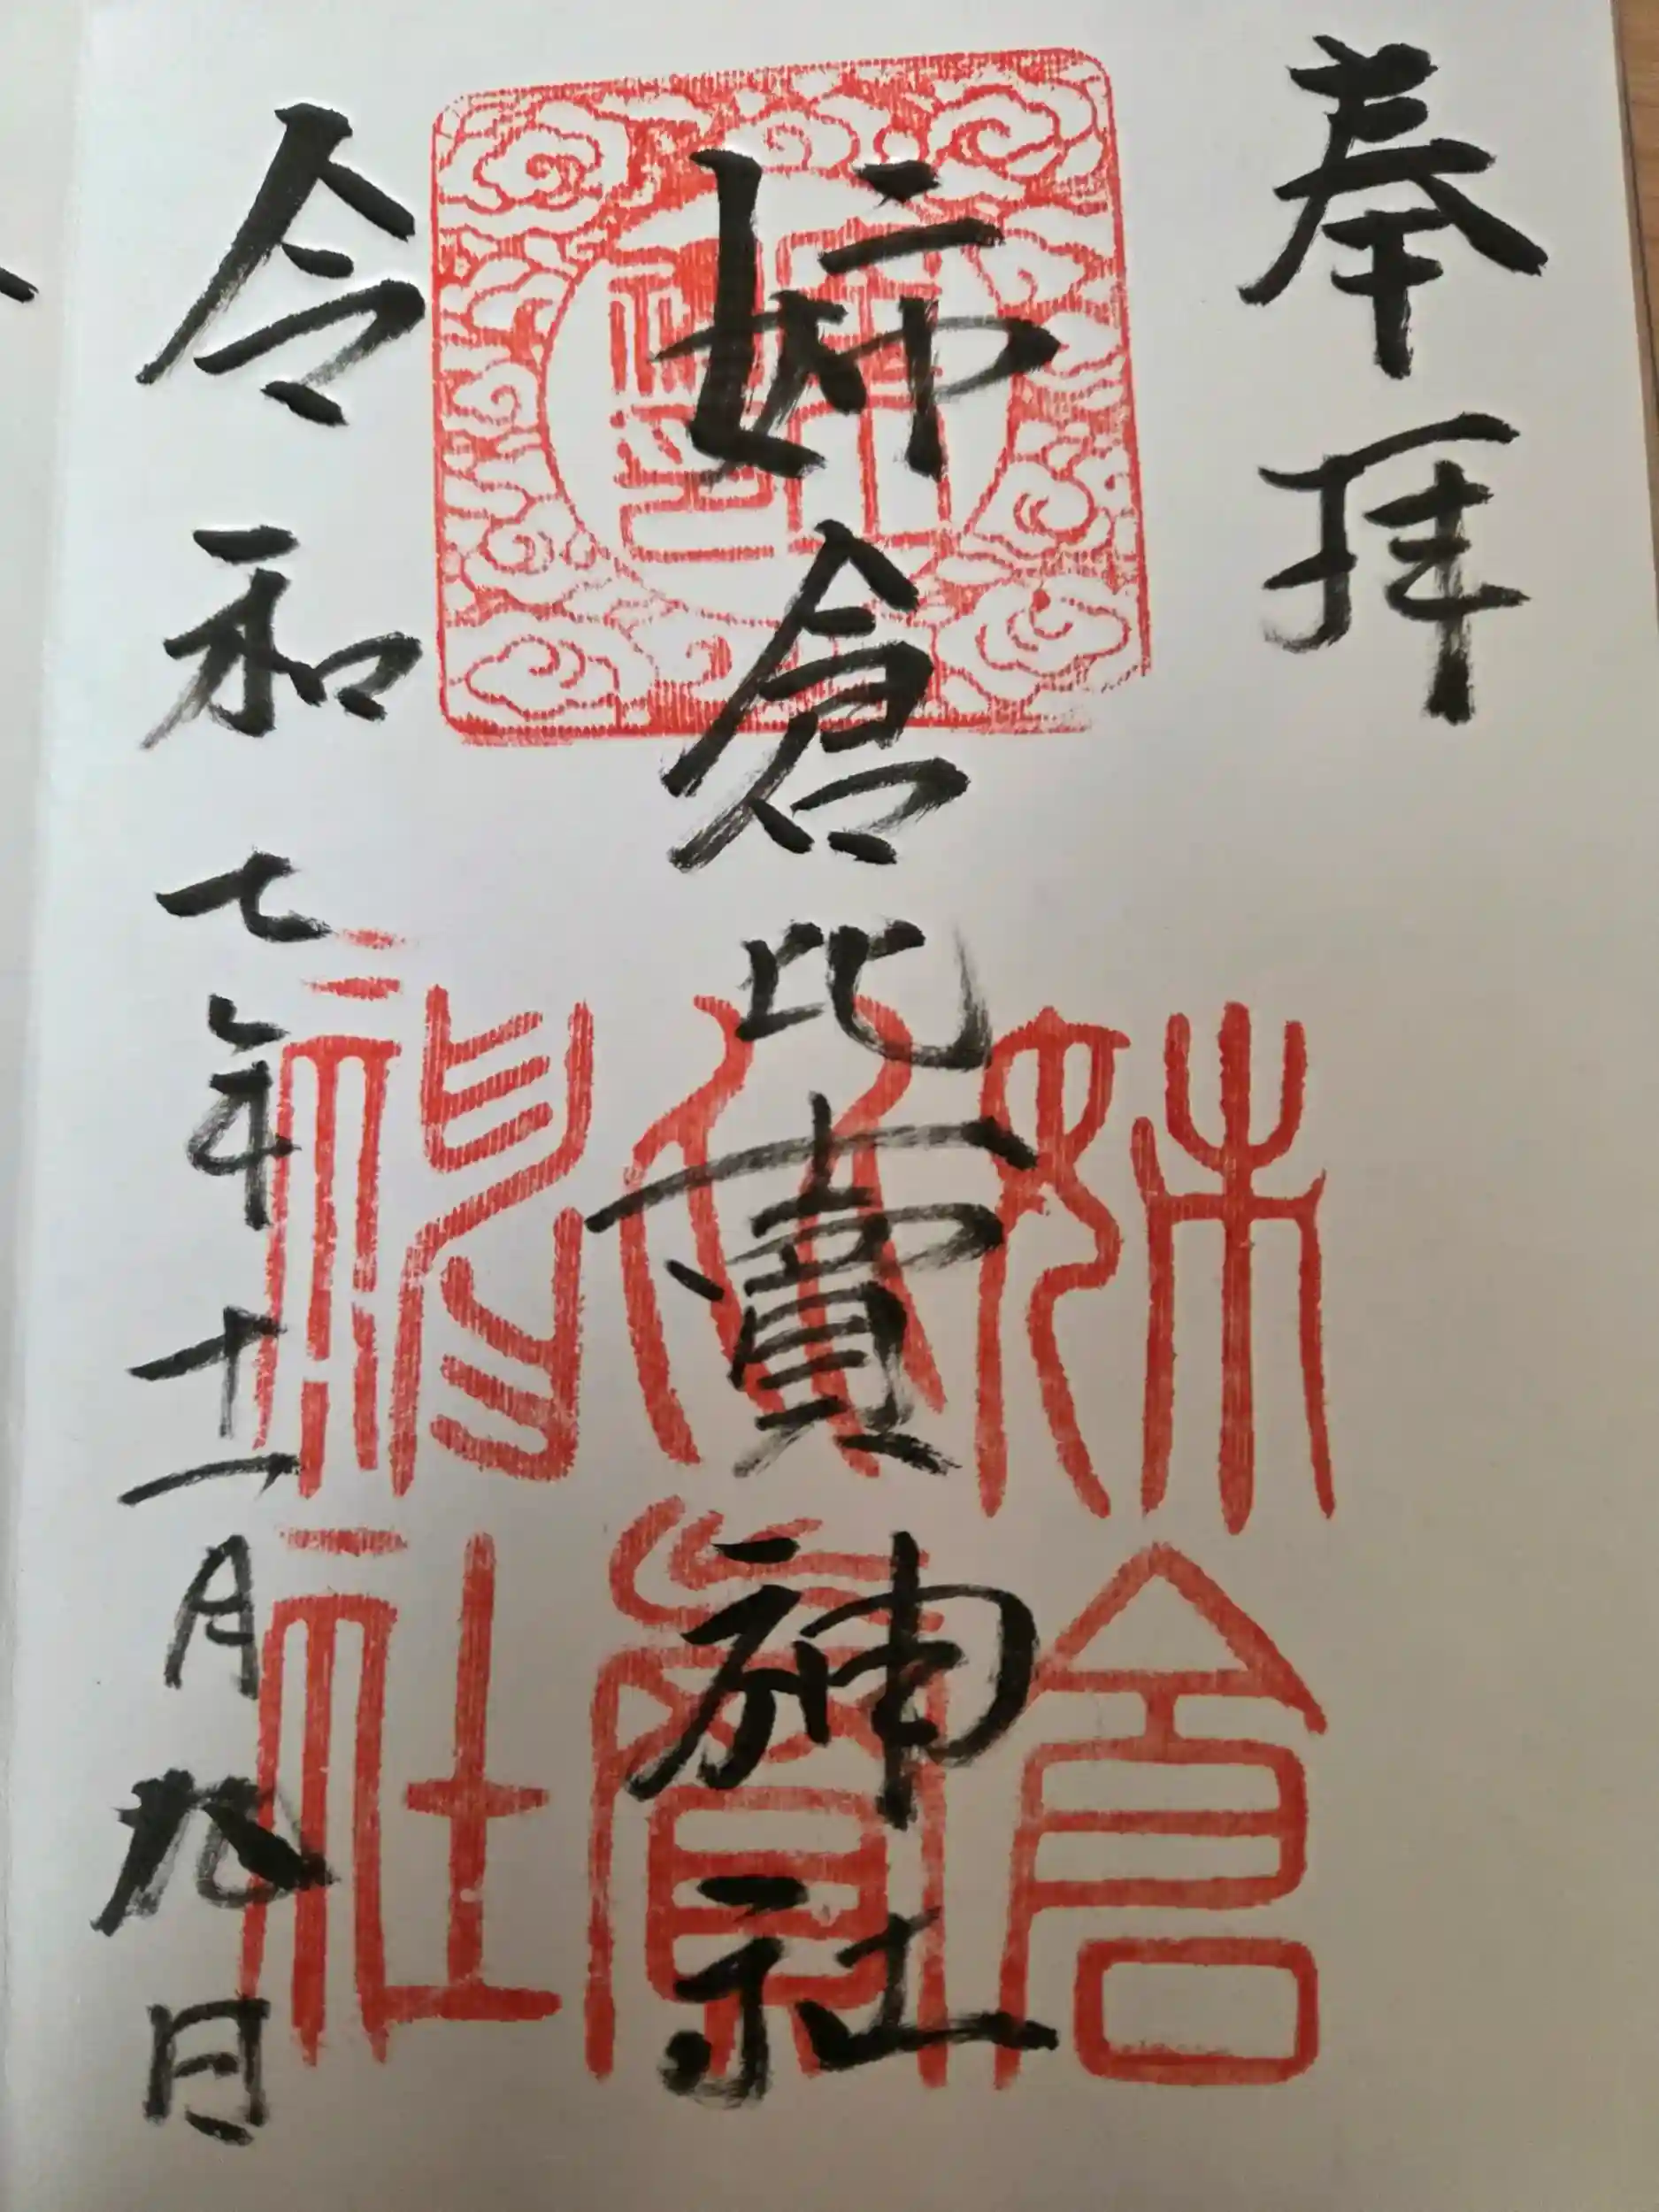 奉拝
姉倉比賣神社
令和七年十一月九日
姉倉比賣神社